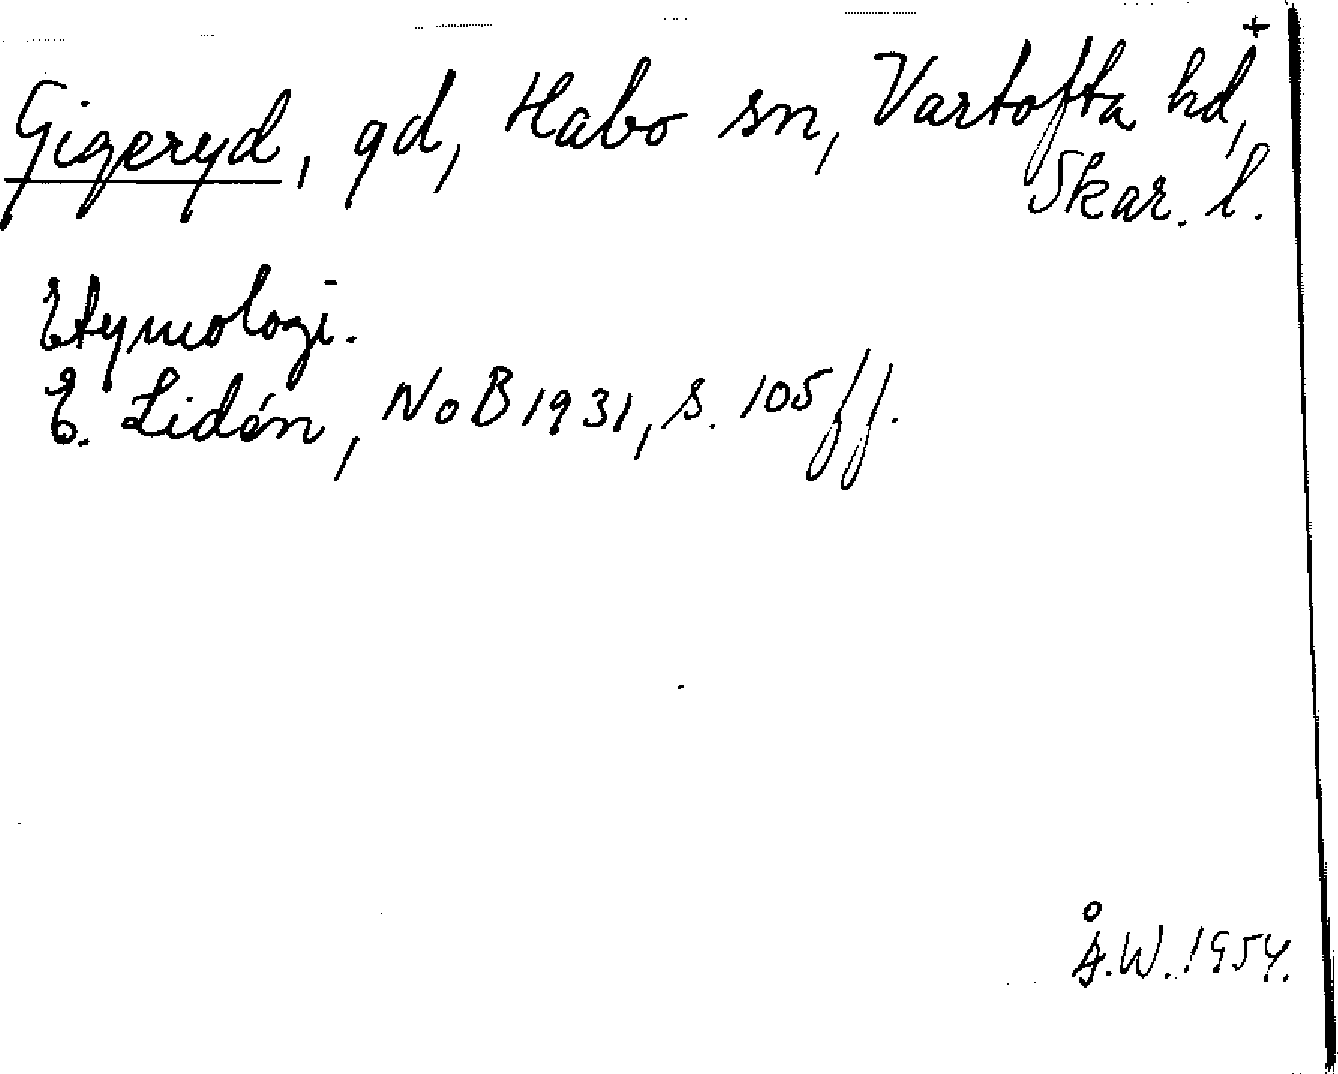 +
Gigeryd, gd, Habo sn, Vartofta hd,
Skar. l.
Etymologi.
E. Lidén, NoB 1931, s. 105 ff.
Å.W. 1954.